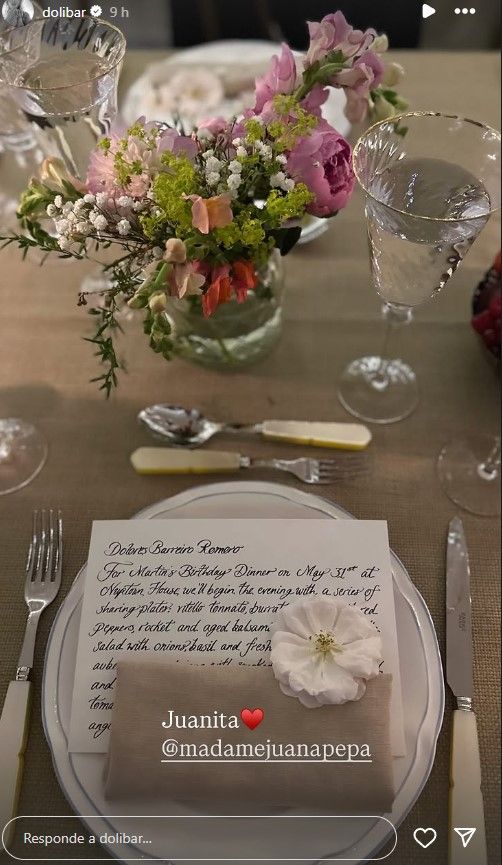 dolibar 9 h
Dolores Barreiro Romero
For Martin's Birthday Dinner on May 31st at
House, we'll begin the evening with a series of
sharing plates: vitello tonnato, burrat
peppers, rocket and aged balsam
salad with onion, basil and fresh
aube
and
ang
Juanita❤️
@madamejuanapepa
Responde a dolibar...